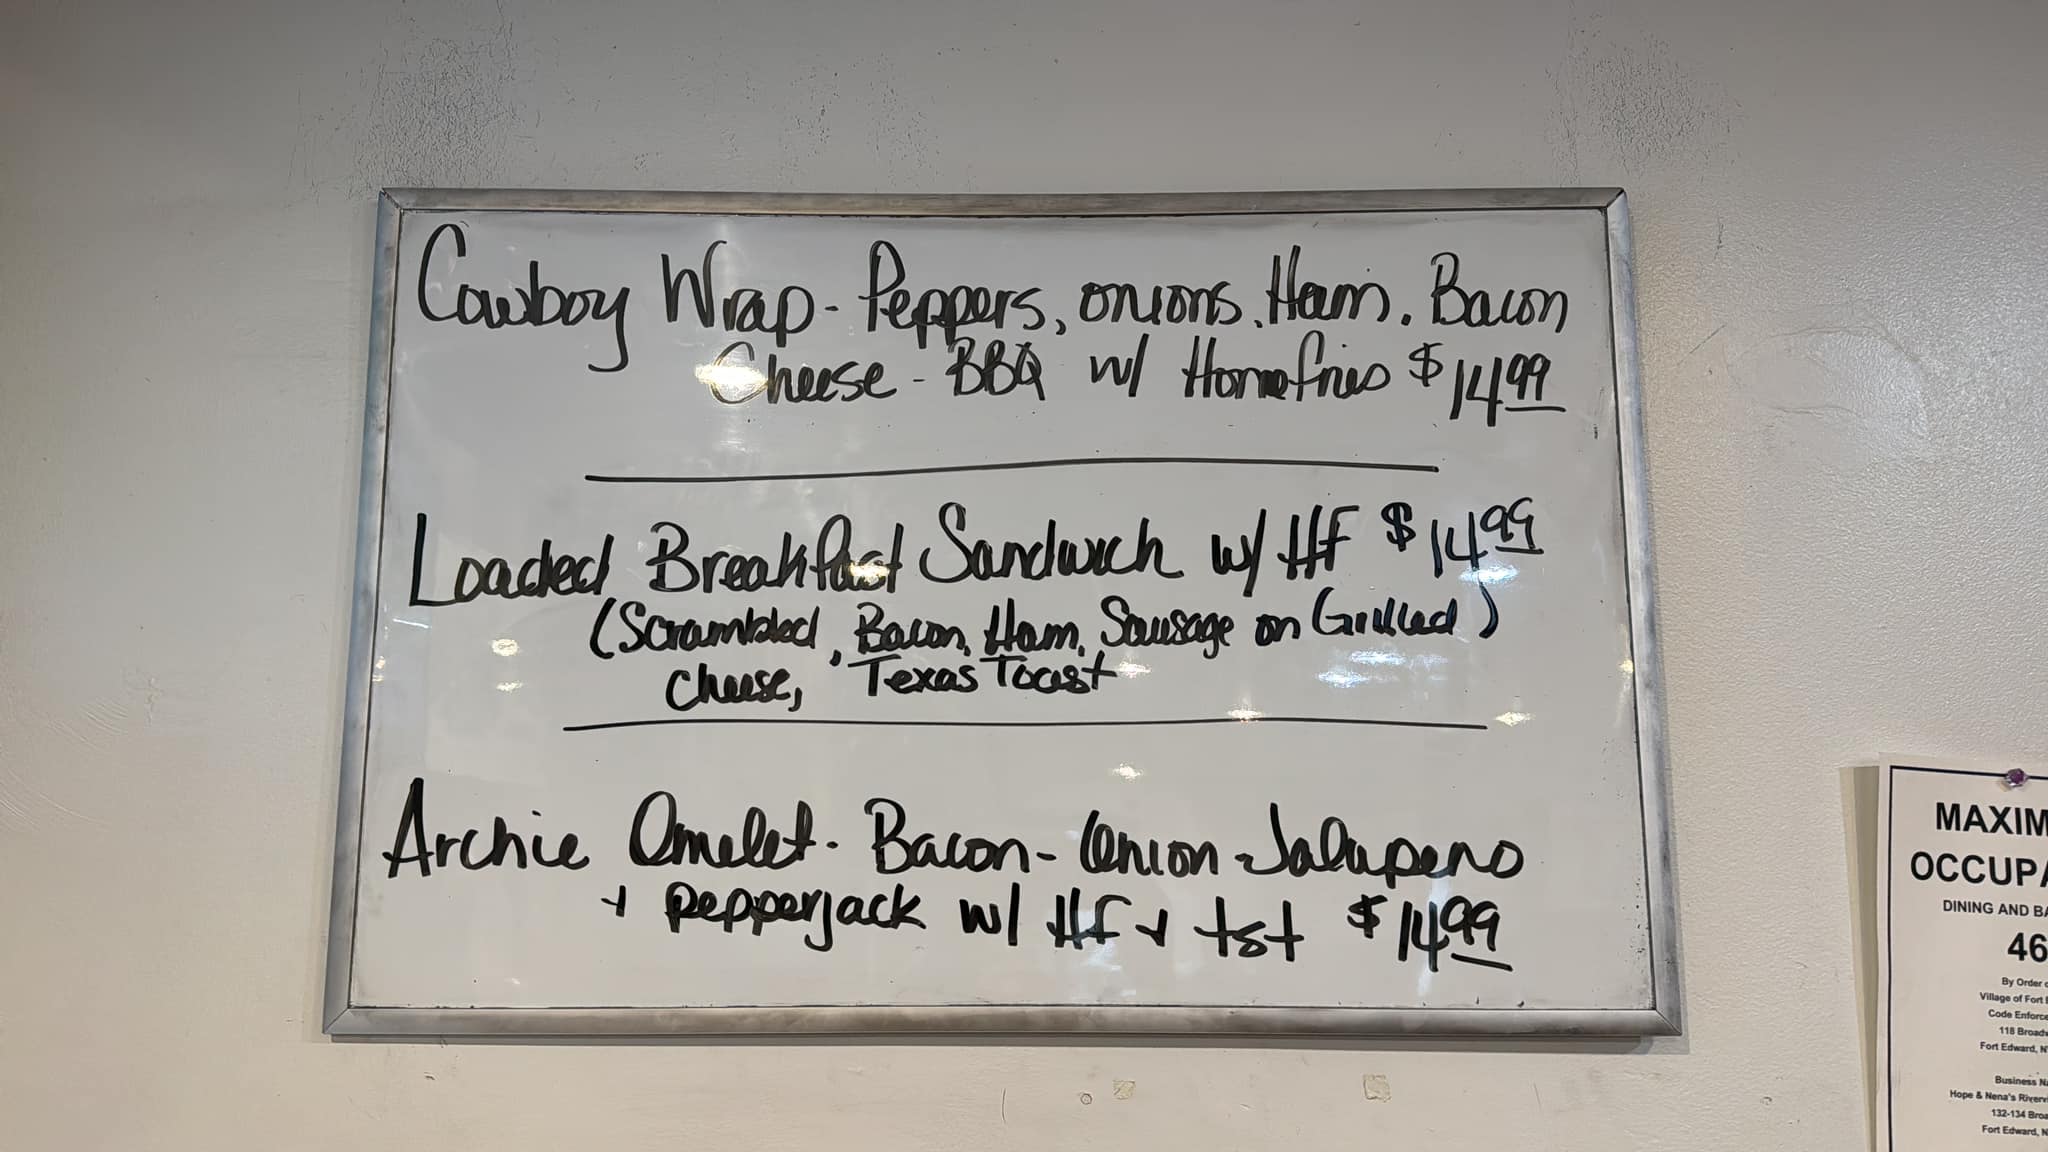 Cowboy Wrap - Peppers, onions, Ham, Bacon
Cheese - BBQ w/ Homefries $14.99
Loaded Breakfast Sandwich w/ HF $14.99
(Scrambled, Bacon, Ham, Sausage on Grilled)
Cheese, Texas Toast
Archie Omelet - Bacon - Onion - Jalapeno
+ pepperjack w/ HF + tst $14.99
MAXIM
OCCUPA
DINING AND BA
46
By Order o
Village of Fort E
Code Enforce
118 Broadw
Fort Edward, N
Business Na
Hope & Nena's Riverv
132-134 Broa
Fort Edward, N